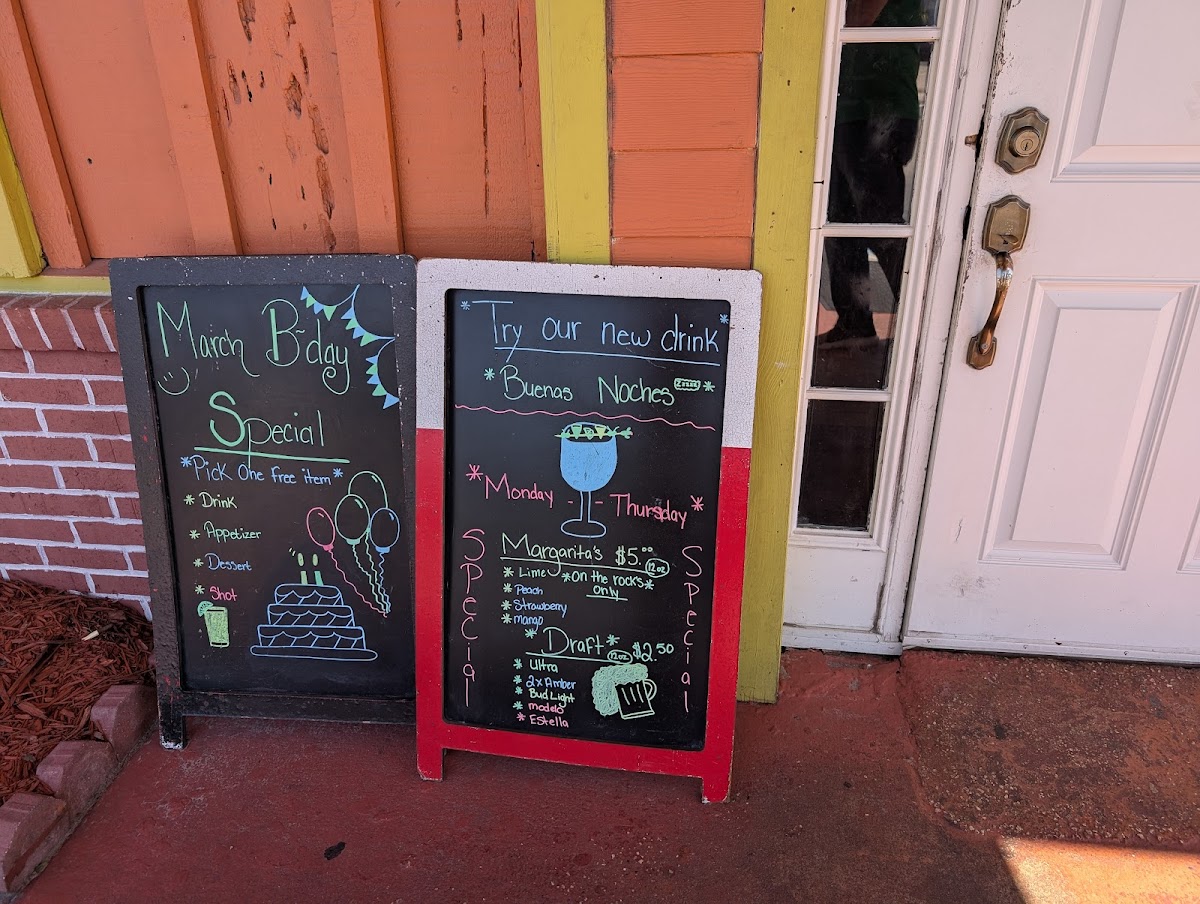 March B-day
Special
*Pick One free item*
* Drink
* Appetizer
* Dessert
* Shot
* Try our new drink *
* Buenas Noches Zzzz *
* Monday - - Thursday *
Special
Special
Margarita's $5.00 12oz
* Lime
* Peach
* Strawberry
* Mango
*On the rocks*
only
* Draft * 12oz $2.50
* Ultra
* 2x Amber
* Bud Light
* modelo
* Estella